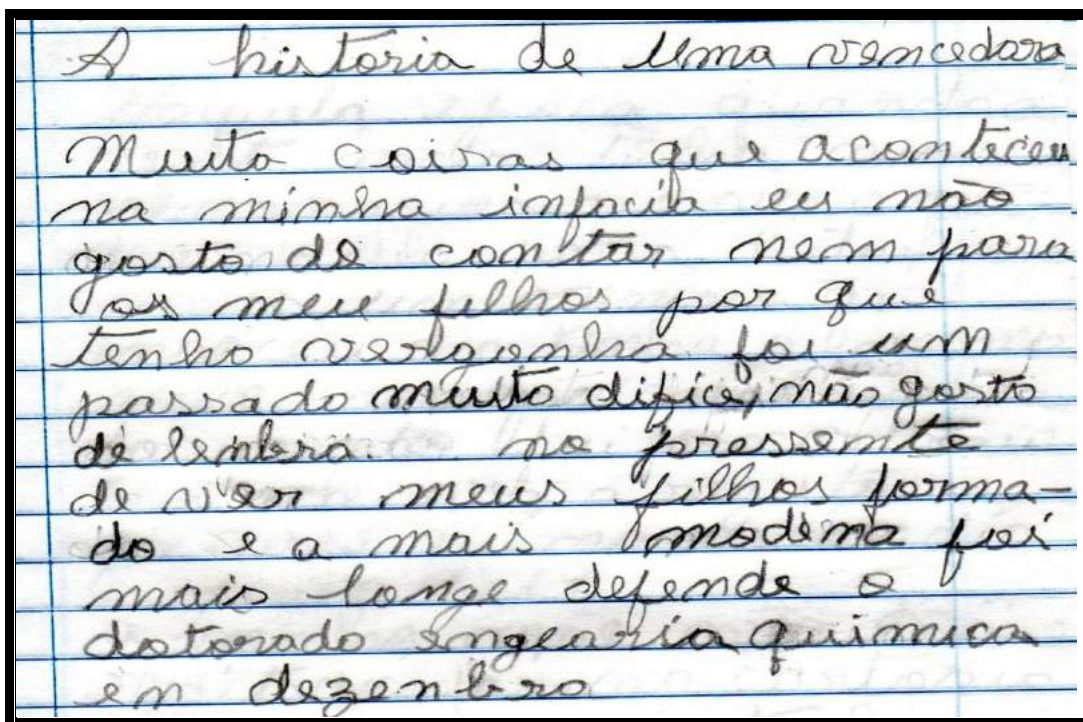 A historia de Uma vencedora
Muita coisas que aconteceu
na minha infacia eu não
gosto de contar nem para
os meu filhos por que
tenho vergonha foi um
passado muito dificio, não gosto
de lembra. no pressente
de ver meus filhos forma-
do e a mais modena foi
mais longe defende o
dotorado engearia quimica
em dezenbro